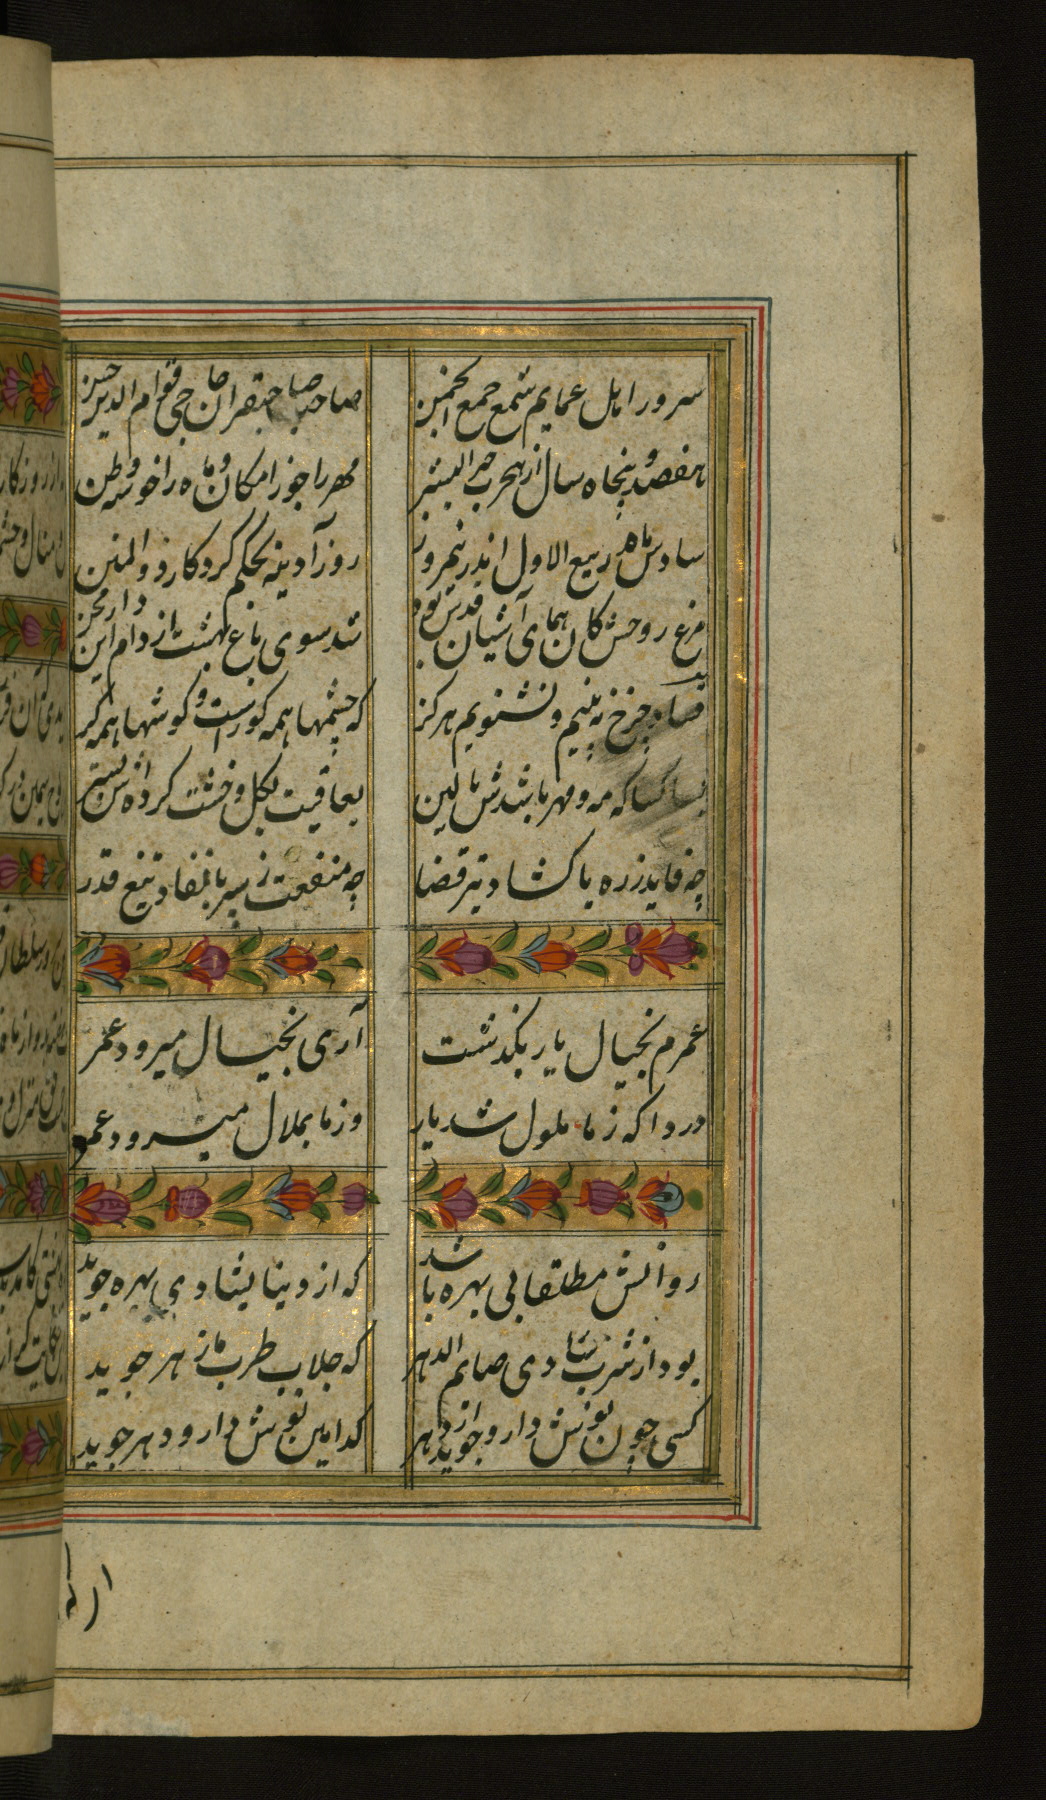 سرور اهل عمایم شمع جمع انجمن
صاحب صاحبقران حاجی قوام الدین حسن
هفصد و پنجاه سال از هجرت خیر البشر
مهر را جوزا مکان و ماه را خوشه وطن
سادس ماه ربیع الاول اندر نیمروز
روز آدینه بحکم کردکار ذوالمنن
مرغ روحش کان همای آشیان قدس بود
شد سوی باغ بهشت از دام این دار محن
فساد چرخ نه بینیم و نشنویم هرکز
که چشمها همه کورست و کوشها همه کر
بسا کسا که مه و مهر باشدش بالین
بعاقبت بکل و خشت کرده اش بستر
چه فایده زره با کشاد تیر قضا
چه منفعت ز سپر با نفاد تیغ قدر
عمرم بخیال یار بکذشت
آری بخیال میرود عمر
دردا که ز ما ملول شد یار
وز ما بملال میرود عمر
روانش مطلقا بی بهره باشد
که از دینا بشادی بهره جوید
بود از شرب شادی صایم الدهر
که جلاب طرب از هر جوید
کسی چون نوش دارو جوید از دهر
کدامین نوش دارو دهر جوید